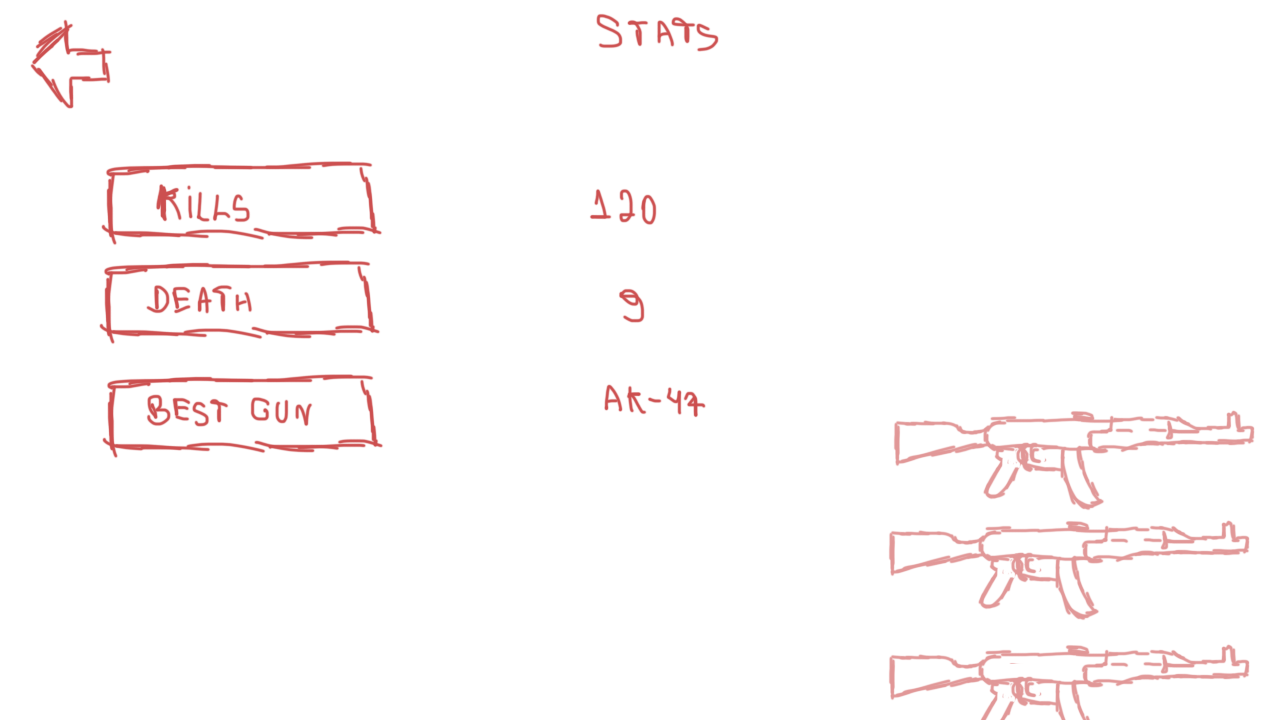 STATS
KiLLS
120
DEATH
9
BEST GUN
AK-47